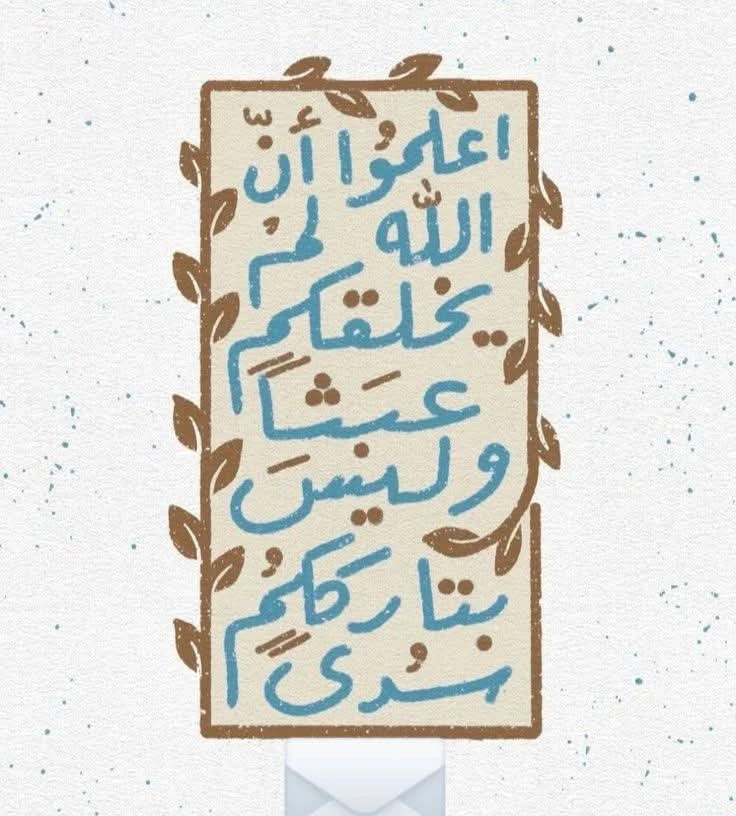 اعلموُا أنّ
اللّه لمْ
يخلقكم
عبَثاً
وليسَ
بتارككمُ
سُدىً